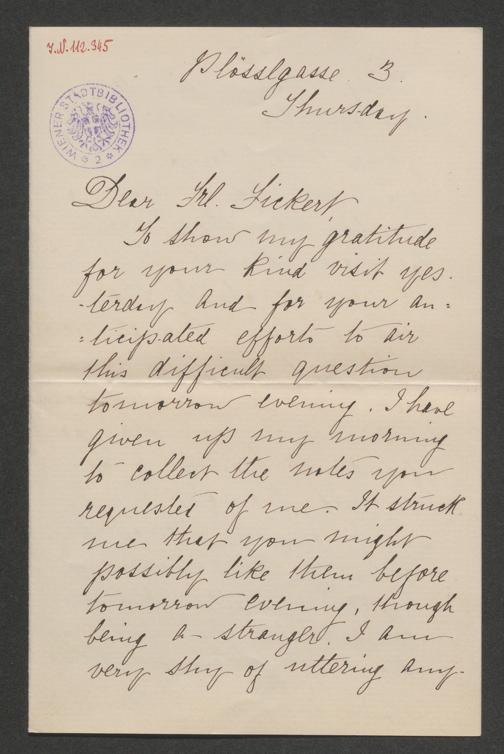 J.N. 112.345
WIENER STADTBIBLIOTHEK
2
Plösslgasse 3.
Thursday.
Dear Frl. Fickert,
To show my gratitude
for your kind visit yes-
-terday and for your an=
=ticipated efforts to air
this difficult question
tomorrow evening. I have
given up my morning
to collect the notes you
requested of me. It struck
me that you might
possibly like them before
tomorrow evening, though
being a stranger, I am
very shy of uttering any-